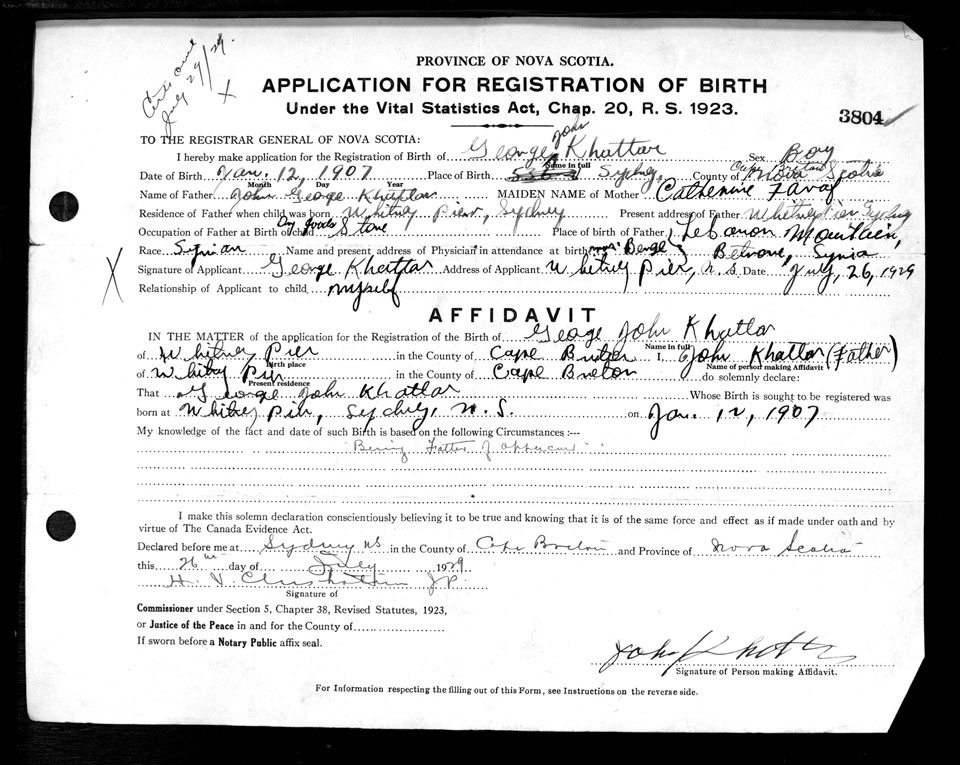 Certs out
July 29/29.
X
PROVINCE OF NOVA SCOTIA.
APPLICATION FOR REGISTRATION OF BIRTH
Under the Vital Statistics Act, Chap. 20, R. S. 1923.
3804
TO THE REGISTRAR GENERAL OF NOVA SCOTIA:
I hereby make application for the Registration of Birth of George John Khattar Sex Boy
Name in full
Date of Birth Jan. 12, 1907 Place of Birth Sydney, County of Cape Breton Nova Scotia
Month Day Year
Name of Father John George Khattar MAIDEN NAME of Mother Catherine Faraj
Residence of Father when child was born Whitney Pier, Sydney Present address of Father Whitney Pier Sydney
Occupation of Father at Birth of child Dry Goods Store Place of birth of Father Lebanon Mountain,
Race Syrian Name and present address of Physician in attendance at birth Mrs. Benge Betrone, Syria
Signature of Applicant George Khattar Address of Applicant Whitney Pier, N.S. Date July, 26, 1929
Relationship of Applicant to child myself
X
AFFIDAVIT
IN THE MATTER of the application for the Registration of the Birth of George John Khattar
Name in full
of Whitney Pier in the County of Cape Breton I, John Khattar (Father)
Birth place Name of person making Affidavit
of Whitney Pier in the County of Cape Breton do solemnly declare:
Present residence
That George John Khattar Whose Birth is sought to be registered was
born at Whitney Pier, Sydney, N.S. on Jan. 12, 1907
My knowledge of the fact and date of such Birth is based on the following Circumstances :—
Being Father of applicant
I make this solemn declaration conscientiously believing it to be true and knowing that it is of the same force and effect as if made under oath and by
virtue of The Canada Evidence Act.
Declared before me at Sydney NS in the County of Cape Breton and Province of Nova Scotia
this 26th day of July 1929
H. V. J.P.
Signature of
Commissioner under Section 5, Chapter 38, Revised Statutes, 1923,
or Justice of the Peace in and for the County of
If sworn before a Notary Public affix seal.
John Khattar
Signature of Person making Affidavit.
For Information respecting the filling out of this Form, see Instructions on the reverse side.